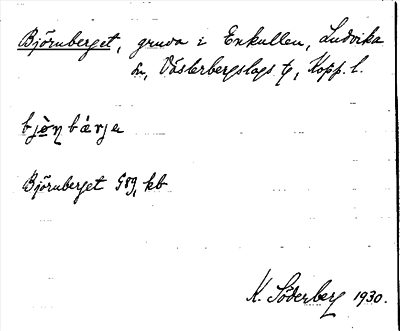 Björnberget, gruva i Enkullen, Ludvika
sn, Västerbergslags tg, Kopp. l.
bjὼη bærje
Björnberget G89, kb
K. Söderberg 1930.